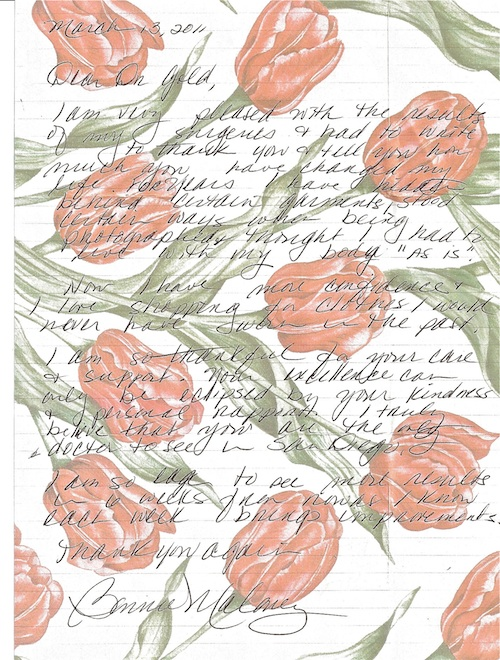 March 13, 2011
Dear Dr Gold,
I am very pleased with the results
of my surgeries & had to write
to thank you & tell you how
much you have changed my
life. For years I have hidden
behind certain garments, stood
certain ways when being
photographed & thought I had to
live with my body "AS IS"
Now I have more confidence &
I love shopping for clothes I would
never have worn in the past.
I am so thankful for your care
& support. Your excellence can
only be eclipsed by your kindness
& personal rapport. I truly
believe that you are the only
doctor to see in San Diego.
I am so eager to see more results
in 6 weeks from now as I know
each week brings improvements.
Thank you again
Bonnie